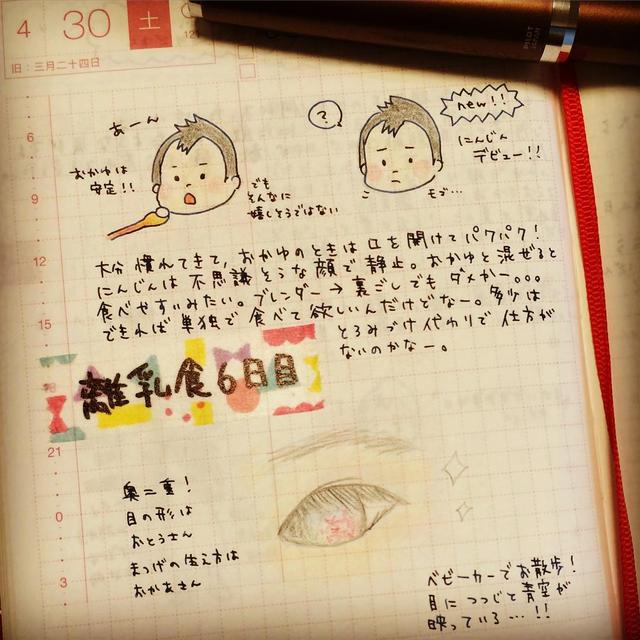 4 30 土
旧:三月二十四日
PILOT
JAPAN
6
9
12
15
18
21
0
3
あーん
おかゆは
安定!!
でも
そんなに
嬉しそうではない
?
new!!
にんじん
デビュー!!
モゴ…
大分 慣れてきて、おかゆのときは口を開けてパクパク!
にんじんは不思議そうな顔で静止。おかゆと混ぜると
食べやすいみたい。ブレンダー→裏ごしでもダメかー。。。
できれば単独で食べて欲しいんだけどなー。多少は
とろみづけ代わりで仕方が
ないのかなー。
離乳食6日目
奥二重!
目の形は
おとうさん
まつげの生え方は
おかあさん
ベビーカーでお散歩!
目につつじと青空が
映っている…!!